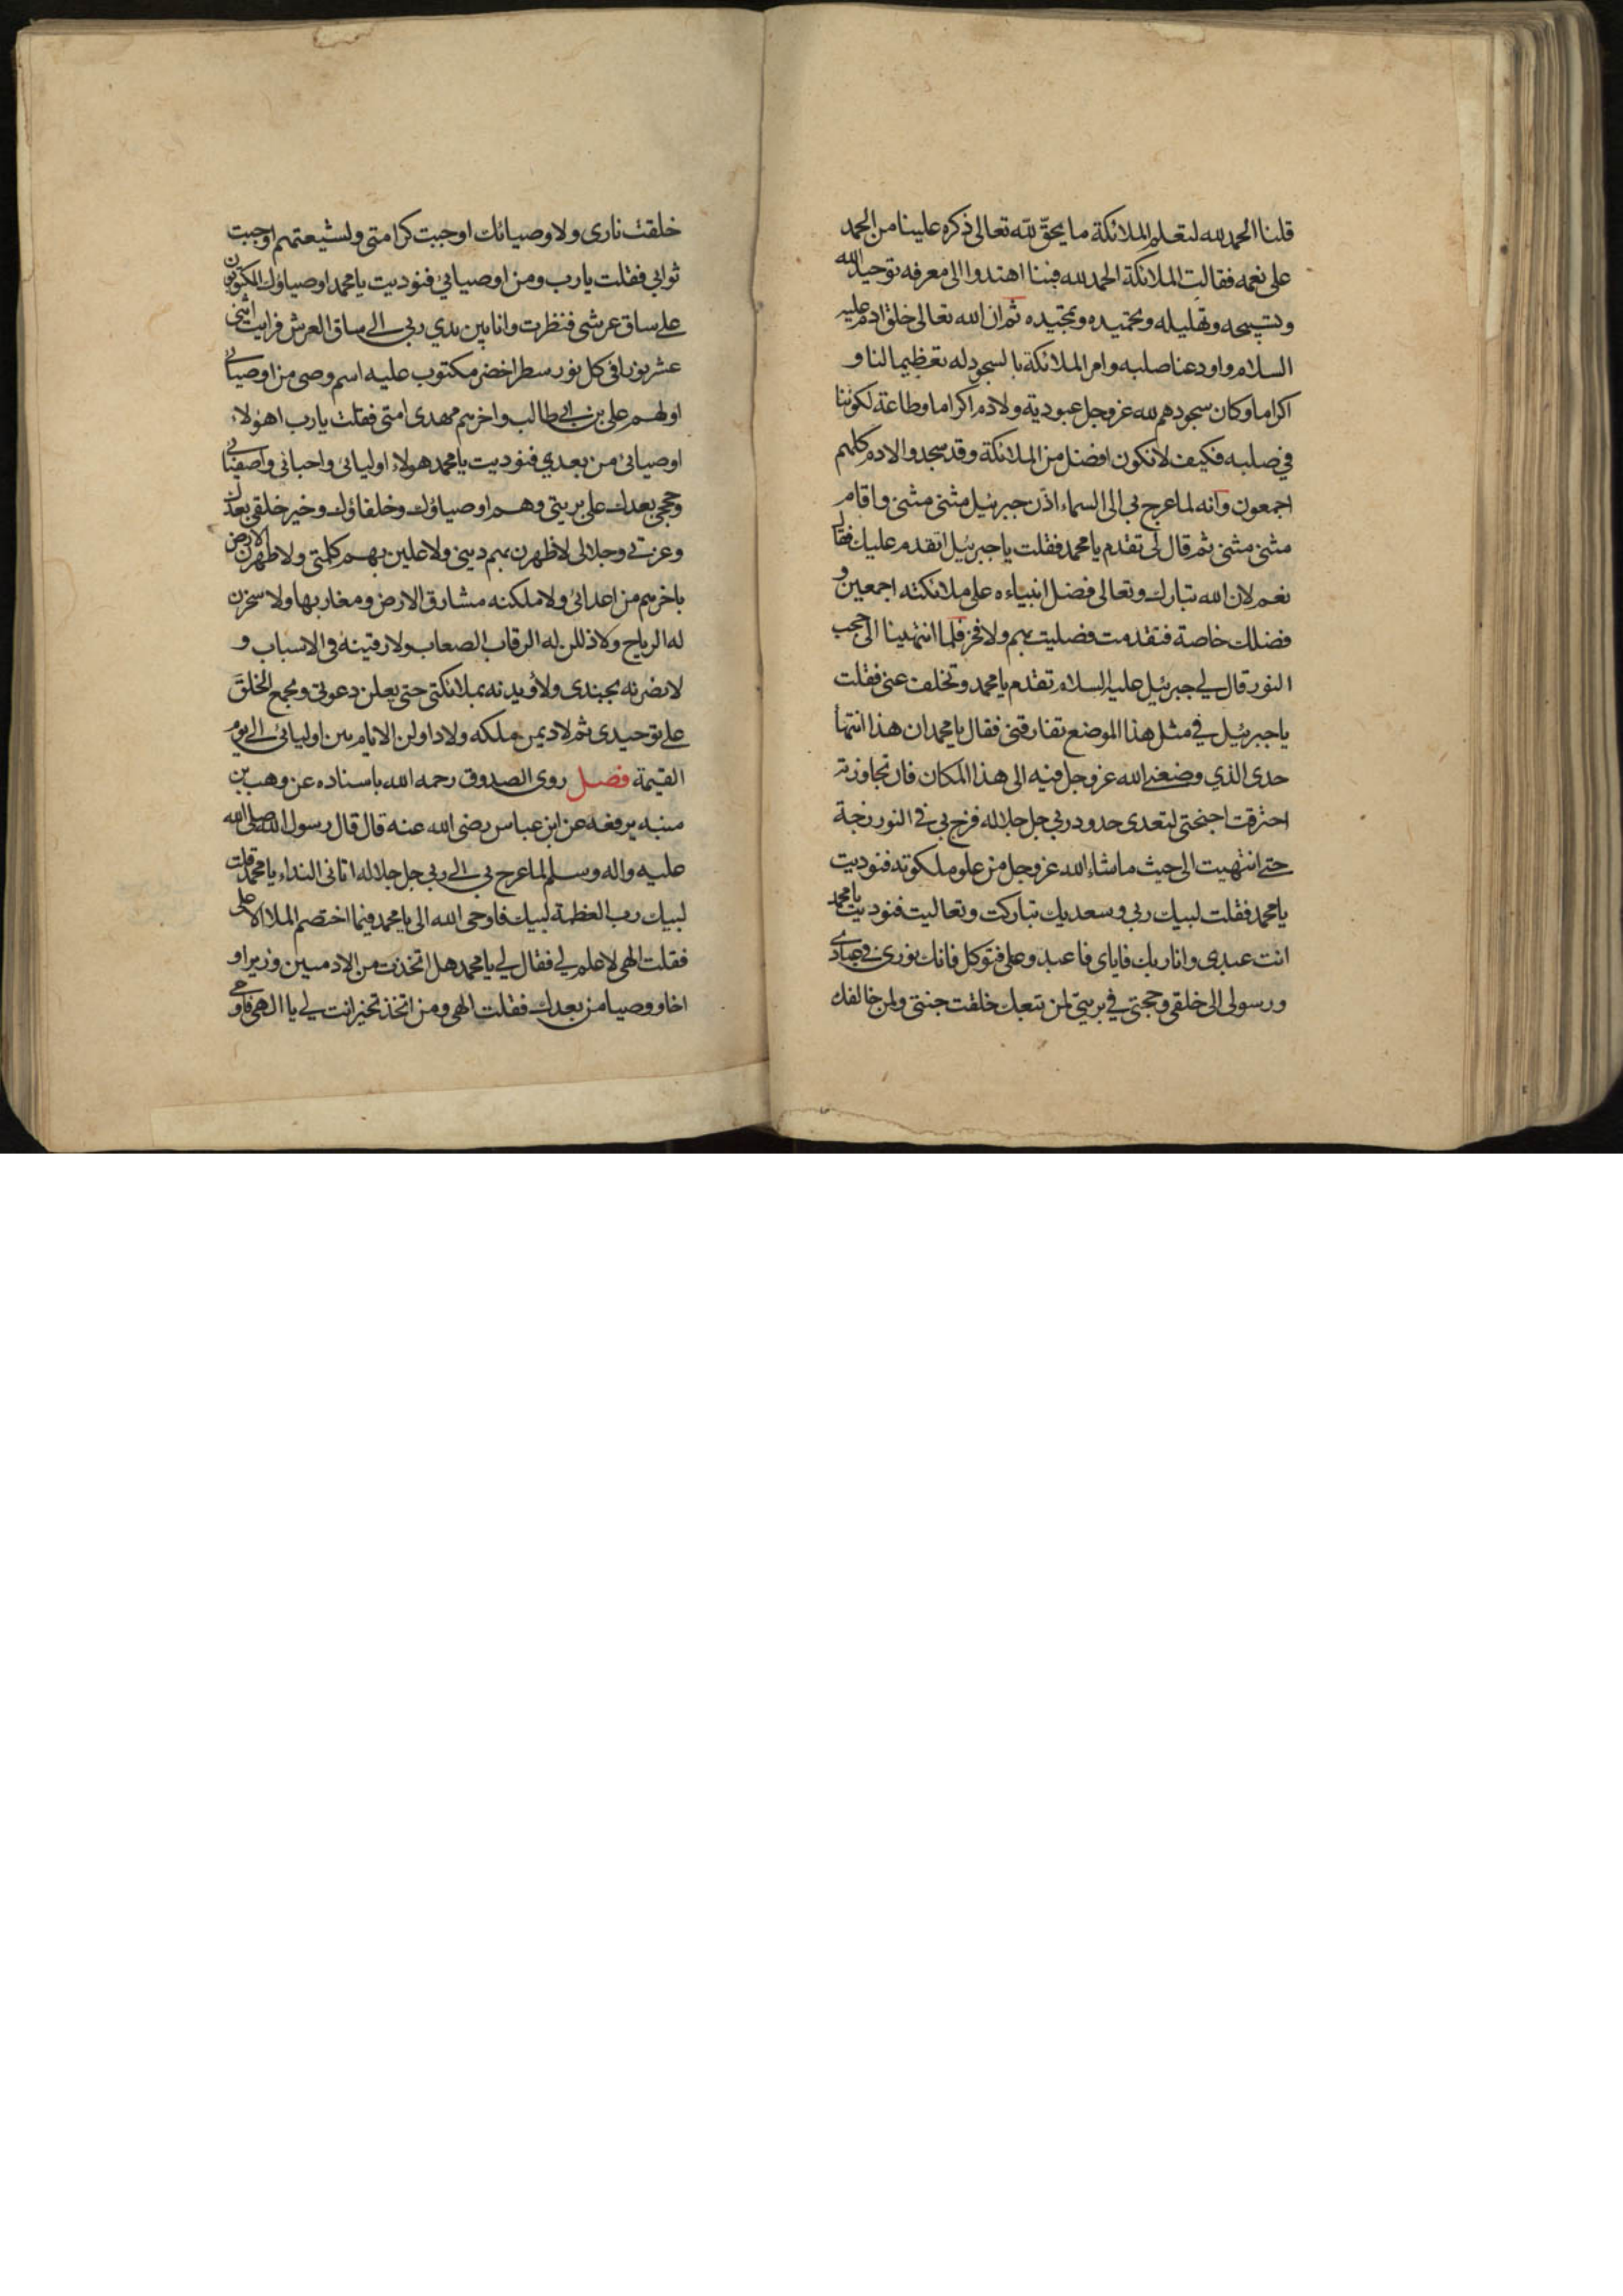 قلنا الحمد لله لتعلم الملائكة ما يحقّ لله تعالى ذكره علينا من الحمد
على نعمه فقالت الملائكة الحمد لله فبنا اهتدوا الى معرفه توحيد الله
وتسبيحه وتهليله وتحميده وتمجيده ثم ان الله تعالى خلق ادم عليه
السلام واودعنا صلبه وامر الملائكة بالسجود له تعظيما لنا و
اكراما وكان سجودهم لله عز وجل عبودية ولادم اكراما وطاعة لكوننا
في صلبه فكيف لا نكون افضل من الملائكة وقد سجدوا لادم كلهم
اجمعون وانه لما عرج بي الى السماء اذّن جبرئيل مثنى مثنى واقام
مثنى مثنى ثم قال لى تقدم يا محمد فقلت يا جبرئيل اتقدم عليك فقال
نعم لان الله تبارك وتعالى فضل انبياءه على ملائكته اجمعين و
فضلك خاصة فتقدمت فصليت بهم ولا فخر فلما انتهينا الى حجب
النور قال لي جبرئيل عليه السلام تقدم يا محمد وتخلف عنى فقلت
يا جبرئيل في مثل هذا الموضع تفارقنى فقال يا محمد ان هذا انتها
حدى الذي وضعنى الله عز وجل فيه الى هذا المكان فان تجاوزته
احترقت اجنحتى لتعدى حدود ربى جل جلاله فزج بى فى النور زجة
حتى انتهيت الى حيث ما شاء الله عز وجل من علو ملكوته فنوديت
يا محمد فقلت لبيك ربى وسعديك تباركت وتعاليت فنوديت يا محمد
انت عبدى وانا ربك فاياى فاعبد وعلى فتوكل فانك نورى في عبادى
ورسولى الى خلقى وحجتى في بريتى لمن تبعك خلقت جنتى ولمن خالفك
خلقت نارى ولاوصيائك اوجبت كرامتى ولشيعتهم اوجبت
ثوابى فقلت يا رب ومن اوصيائى فنوديت يا محمد اوصياؤك المكتوبون
على ساق عرشى فنظرت وانا بين يدي ربى الى ساق العرش فرايت اثنى
عشر نورا فى كل نور سطر اخضر مكتوب عليه اسم وصى من اوصيائى
اولهم على بن ابى طالب واخرهم مهدى امتى فقلت يا رب اهؤلاء
اوصيائى من بعدي فنوديت يا محمد هولاء اوليائى واحبائى واصفيائى
وحججى بعدك على بريتى وهم اوصياؤك وخلفاؤك وخير خلقى بعدك
وعزتى وجلالى لاظهرن بهم دينى ولاعلين بهم كلمتى ولاطهرن الارض
باخرهم من اعدائى ولاملكنه مشارق الارض ومغاربها ولاسخرن
له الرياح ولاذللن له الرقاب الصعاب ولارقينه فى الاسباب و
لانصرنه بجندى ولاؤيدنه بملائكتى حتى يعلن دعوتى ويجمع الخلق
على توحيدى ثم لاديمن ملكه ولاداولن الايام بين اوليائى الى يوم
القيمة فصل روى الصدوق رحمه الله باسناده عن وهب بن
منبه يرفعه عن ابن عباس رضى الله عنه قال قال رسول الله صلى الله
عليه واله وسلم لما عرج بى الى ربى جل جلاله اتانى النداء يا محمد قلت
لبيك رب العظمة لبيك فاوحى الله الى يا محمد فيما اختصم الملا الاعلى
فقلت الهى لا علم لي فقال لي يا محمد هل اتخذت من الادميين وزيرا و
اخا ووصيا من بعدك فقلت الهى ومن اتخذ تخير انت لي يا الهى فاوحى